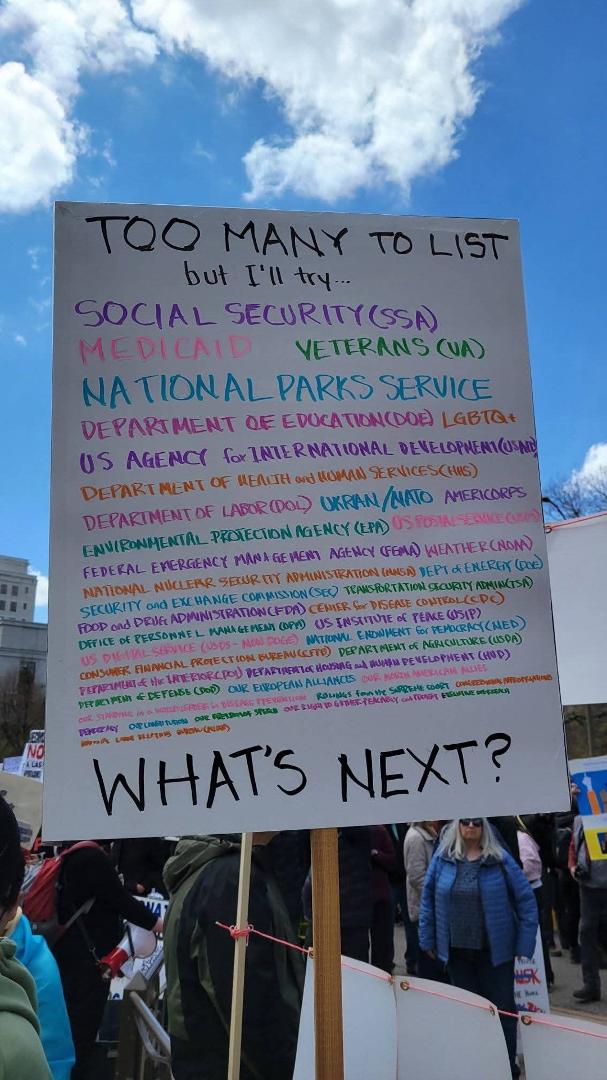 TOO MANY TO LIST
but I'll try...
SOCIAL SECURITY (SSA)
MEDICAID VETERANS (VA)
NATIONAL PARKS SERVICE
DEPARTMENT OF EDUCATION (DOE) LGBTQ+
US AGENCY for INTERNATIONAL DEVELOPMENT (USAID)
DEPARTMENT OF HEALTH and HUMAN SERVICES (HHS)
DEPARTMENT OF LABOR (DOL) UKRAN/NATO AMERICORPS
ENVIRONMENTAL PROTECTION AGENCY (EPA) US POSTAL SERVICE (USPS)
FEDERAL EMERGENCY MANAGEMENT AGENCY (FEMA) WEATHER (NOAA)
NATIONAL NUCLEAR SECURITY ADMINISTRATION (NNSA) DEPT of ENERGY (DOE)
SECURITY and EXCHANGE COMMISSION (SEC) TRANSPORTATION SECURITY ADMIN (TSA)
FOOD and DRUG ADMINISTRATION (FDA) CENTER for DISEASE CONTROL (CDC)
OFFICE OF PERSONNEL MANAGEMENT (OPM) US INSTITUTE of PEACE (USIP)
US DIGITAL SERVICE (USDS - NOW DOGE) NATIONAL ENDOWMENT for DEMOCRACY (NED)
CONSUMER FINANCIAL PROTECTION BUREAU (CFPB) DEPARTMENT OF AGRICULTURE (USDA)
DEPARTMENT of the INTERIOR (DOI) DEPARTMENT of HOUSING and HUMAN DEVELOPMENT (HUD)
DEPARTMENT of DEFENSE (DOD) OUR EUROPEAN ALLIANCES OUR NORTH AMERICAN ALLIES CONGRESSIONAL APPROPRIATIONS
OUR STANDING as a WORLD LEADER in DISEASE PREVENTION RULINGS from the SUPREME COURT
DEMOCRACY OUR CONSTITUTION OUR FREEDOM of SPEECH OUR RIGHT to GATHER PEACEABLY
NATIONAL LABOR RELATIONS BUREAU (NLRB)
WHAT'S NEXT?
NO